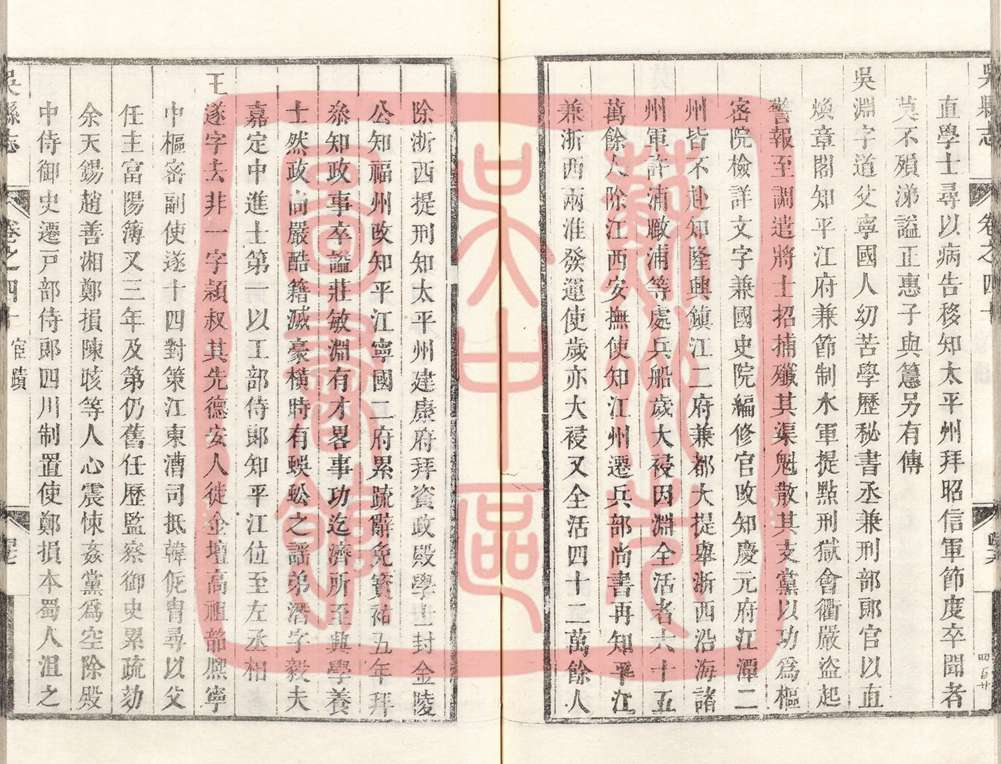 吳縣志
卷之四十
直學士尋以病告移知太平州拜昭信軍節度卒聞者
莫不殞涕謚正惠子與𥲅另有傳
吳淵字道父寧國人幼苦學歷秘書丞兼刑部郎官以直
煥章閣知平江府兼節制水軍提點刑獄會衢嚴盜起
警報至調遣將士招捕殲其渠魁散其支黨以功爲樞
密院檢詳文字兼國史院編修官攺知慶元府江潭二
州皆不赴知隆興鎮江二府兼都大提舉浙西沿海諸
州軍許浦澉浦等處兵船歲大祲因淵全活者六十五
萬餘人除江西安撫使知江州遷兵部尚書再知平江
兼浙西兩淮發運使歲亦大祲又全活四十二萬餘人
除浙西提刑知太平州建康府拜資政殿學士封金陵
公知福州攺知平江寧國二府累疏辭免寳祐五年拜
叅知政事卒謚莊敏淵有才畧事功迄濟所至興學養
士然政尚嚴酷籍滅豪橫時有蜈蚣之謡弟潛字毅夫
嘉定中進士第一以工部侍郎知平江位至左丞相
王遂字去非一字潁叔其先德安人徙金壇高祖韶熈寧
中樞密副使遂十四對策江東漕司抵韓侂胄尋以父
任主富陽簿又三年及第仍舊任歷監察御史累疏劾
余天錫趙善湘鄭損陳晐等人心震悚姦黨爲空除殿
中侍御史遷戸部侍郎四川制置使鄭損本蜀人沮之
吳縣志
卷之四十
宦蹟
蘇州市
吳中區
圖書館